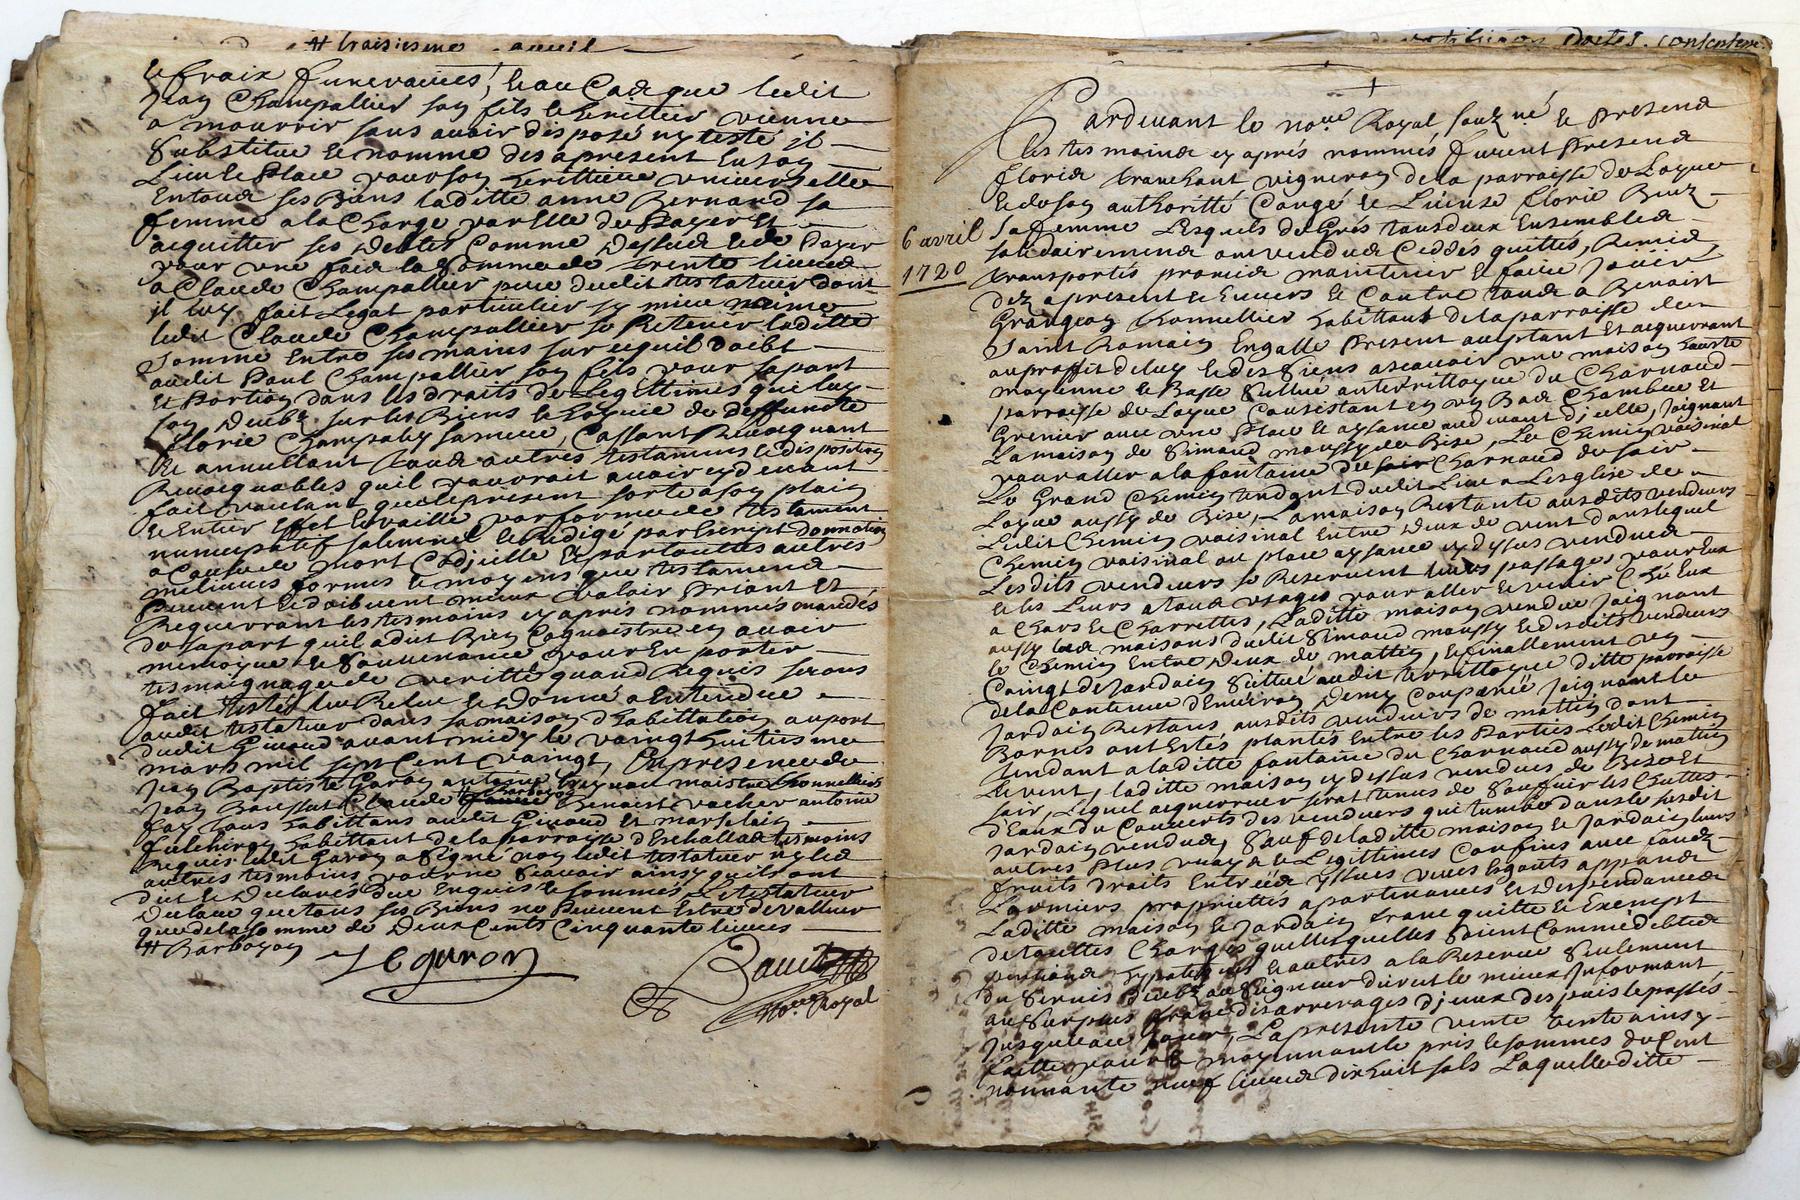 # troisiesme avril
et fraix funeraires, et au cas que ledit
Jean Champallier son fils et heritier vienne
a mourrir sans avoir disposé ny testé il
substitue et nomme des apresent en son
lieu et place pour son heritiere universelle
en tous ses biens laditte anne Bernard sa
femme a la charge par elle de payer et
acquitter ses debtes comme dessus et de payer
pour une fois la somme de trente livres
a Claude Champallier pere dudit testateur dont
il luy fait legat particulier
ledit Claude Champallier se retenir laditte
somme entre ses mains sur ce quil doibt
audit Paul Champallier son fils pour sa part
et portion dans les droits de legittimes que luy
son deubs sur les biens et hoyrie de deffuncte
florie Champaley sa mere, cassant revocquant
et annullant tous autres testamens et dispositions
revocquables quil pourroit avoir cy devant
fait voulant que le present sorte a son plain
et entier effet et vaille par forme de testament
nuncupatif solemnel et redigé par escript donnation
a cause de mort codicille et par touttes autres
meilieures formes et moyens que testamens
peuvent et doibvent mieux valoir priant et
requerrant les tesmoins cy aprés nommés mandés
de sa part quil a dit bien cognoistre en avoir
memoyre et souvenance pour en porter
tesmoignage de verité quand requis seront
fait testé leu releu et donné a entendre
audit testateur dans sa maison d'habittation au port
dudit Givord avant midy le vaingt huitiesme
mars mil sept cent vaingt, en presence de
Jean Baptiste Garon antoine maistre thonnellier
Jean Claude # Barboyon Benoist Vacher antoine
fay tous habittans audit Givord et
fulchiron habittant de la parroisse d'Eschallas tesmoins
requis ledit Garon a signé non ledit testateur ny les
autres tesmoins pour ne scavoir ainsy quils ont
dit et declaré due enquis et sommés le testateur
declare que tous ses biens ne peuvent estre de valleur
que de la somme de deux cents cinquante livres
# Barboyon
J B garon
no.re Royal
Pardevant le no.re Royal souz.né et presens
les tesmoins cy aprés nommés furent presens
floris tranchant vigneron de la parroisse de Loyre
et de son authoritté congé et licence florie
sa femme lesquels de grés tous deux ensembles
6 avril
1720
solidairement ont vendus ceddés quittés, remis,
transportés promis maintenir et faire jouir
dez apresent et envers et contre tous a Benoist
Grangeon thonnellier habittant de la parroisse de
Saint Romain en galle present acceptant et acquerrant
au profit de luy et des siens ascavoir une maison haute
moyenne et basse scittué au territtoyre du Charnaud
parroisse de Loyre consistant en un bas chambre et
grenier avec une place et aysance au devant d'jcelle, joignant
la maison de Simand moussy de bise, le chemin voisinal
pour aller a la fontaine de Charnaud de soir
le grand chemin tendant dudit lieu a l'esglise de
Loyre aussy de bise, la maison restante ausdits vendeurs
ledit chemin voisinal entre deux de vent dans lequel
chemin voisinal ou place aysance cy dessus vendue
lesdits vendeurs se reservent leurs passages pour eux
et les leurs a tous usages pour aller et venir chés eux
a chars et charrettes, laditte maison vendue joignant
aussy les maisons dudit Simand moussy et desdits vendeurs
le chemin entre deux de mattin, et finallement un
coingt de jardain scittué audit territtoyre ditte parroisse
de la contenue d'environ demy couponée joignant le
jardain restant ausdits vendeurs de mattin dont
bornes ont estés plantés entre les parties ledit chemin
tendant a laditte fontaine du Charnaud aussy de mattin
et vent, laditte maison cy dessus vendue de bize et
soir, lequel acquerreur sera tenus de souffrir les chuttes
d'eaux du couverts des vendeurs qui tumbe dans le susdit
jardain vendus, sauf de laditte maison et jardain leurs
autres plus vrays et legittimes confins avec tous
fruits droits entrées yssues vues esgouts appans
larmiers propriettés apartenances et despendances
laditte maison et jardain franc quitte et exempt
de touttes charges quelles quelles soient comme debtes
pentions hypoteques et autres a la reserve seulement
du servis deubs au seigneur direct le mieux informant
au surplus franc d'arrerages d'jceux des puis le passés
jusque a ce jour, la presente vente ainsy
faitte pour et moyennant le pris et sommes de cent
nonnante neuf livres dixhuit sols laquelle ditte